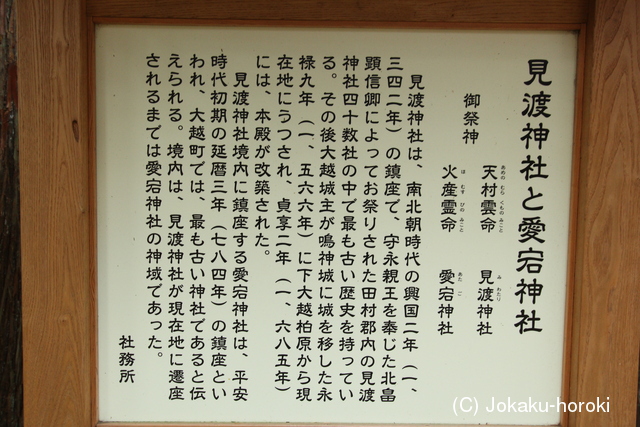 見渡神社と愛宕神社
御祭神
天村雲命 見渡神社
あめのむらくものみこと みわたり
火産霊命 愛宕神社
ほむすびのみこと あたご
見渡神社は、南北朝時代の興国二年（一、
三四二年）の鎮座で、守永親王を奉じた北畠
顕信卿によってお祭りされた田村郡内の見渡
神社四十数社の中で最も古い歴史を持ってい
る。その後大越城主が鳴神城に城を移した永
禄九年（一、五六六年）に下大越柏原から現
在地にうつされ、貞享二年（一、六八五年）
には、本殿が改築された。
見渡神社境内に鎮座する愛宕神社は、平安
時代初期の延暦三年（七八四年）の鎮座とい
われ、大越町では、最も古い神社であると伝
えられる。境内は、見渡神社が現在地に遷座
されるまでは愛宕神社の神域であった。
社務所
(C) Jokaku-horoki